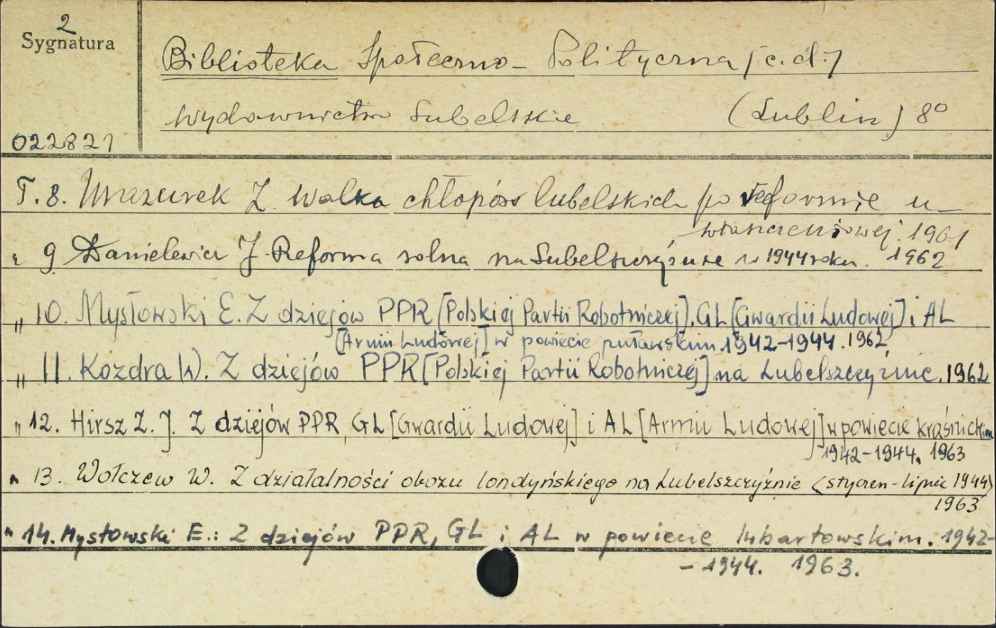 2
Sygnatura
Biblioteka Społeczno-Polityczna [c.d.]
Wydawnictwo Lubelskie (Lublin) 8°
022821
T. 8. Mazurek Z. Walka chłopów lubelskich po reformie u-
właszczeniowej. 1961
" 9 Danielewicz J. Reforma rolna na Lubelszczyźnie w 1944 roku. 1962
" 10. Mysłowski E. Z dziejów PPR [Polskiej Partii Robotniczej], GL [Gwardii Ludowej] i AL
[Armii Ludowej] w powiecie puławskim 1942-1944. 1962
" 11. Kozdra W. Z dziejów PPR [Polskiej Partii Robotniczej] na Lubelszczyźnie. 1962
" 12. Hirsz Z. J. Z dziejów PPR, GL [Gwardii Ludowej] i AL [Armii Ludowej] w powiecie kraśnickim
1942-1944. 1963
" 13. Wołczew W. Z działalności obozu londyńskiego na Lubelszczyźnie (styczeń-lipiec 1944)
1963
" 14. Mysłowski E.: Z dziejów PPR, GL i AL w powiecie lubartowskim. 1942-
-1944. 1963.